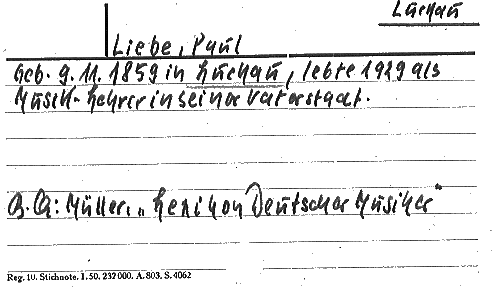 Luckau
Liebe, Paul
Geb. 9. 11. 1859 in Luckau, lebte 1929 als
Musik-Lehrer in seiner Vaterstadt.
B. Q: Müller, „Lexikon Deutscher Musiker"
Reg. 10. Stichnote. 1. 50. 232000. A. 803. S. 4062